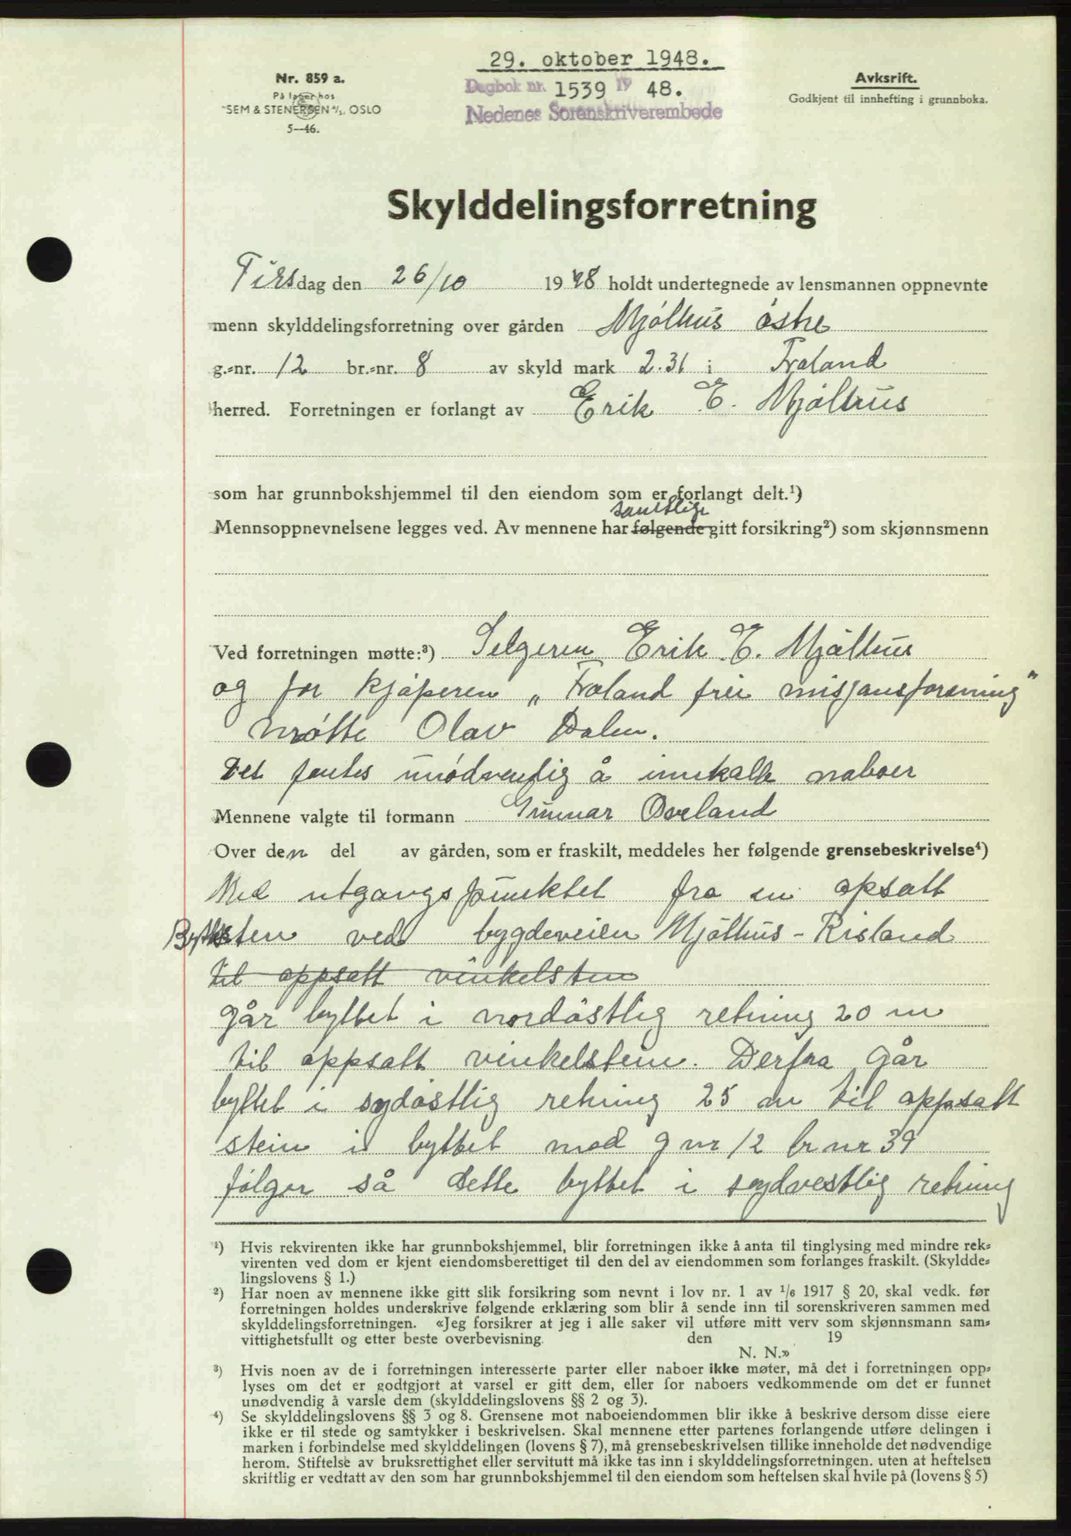 29. oktober 1948.
Nr. 859 a.
På lager hos
SEM & STENERSEN A/S, OSLO
5—46.
Dagbok nr. 1539 19 48.
Nedenes Sorenskriverembede
Avskrift.
Godkjent til innhefting i grunnboka.
Skylddelingsforretning
Tirsdag den 26/10 1948 holdt undertegnede av lensmannen oppnevnte
menn skylddelingsforretning over gården Mjølhus østre
g.-nr. 12 br.-nr. 8 av skyld mark 2.31 i Froland
herred. Forretningen er forlangt av Erik E. Mjølhus
som har grunnbokshjemmel til den eiendom som er forlangt delt.¹)
samtlige
Mennsoppnevnelsene legges ved. Av mennene har følgende gitt forsikring²) som skjønnsmenn
Ved forretningen møtte:³) Selgeren Erik E. Mjølhus
og for kjøperen „Froland frie misjonsforening"
møtte Olav Dalen.
Det fantes unødvendig å innkalle naboer
Mennene valgte til formann Gunnar Oveland
Over den del av gården, som er fraskilt, meddeles her følgende grensebeskrivelse⁴)
Med utgangspunktet fra en opsatt
Byttesten ved bygdeveien Mjølhus - Risland
til oppsatt vinkelsten
går byttet i nordøstlig retning 20 m
til oppsatt vinkelstein. Derfra går
byttet i sydøstlig retning 25 m til oppsatt
stein i byttet med g nr 12 br nr 39
følger så dette byttet i sydvestlig retning
¹) Hvis rekvirenten ikke har grunnbokshjemmel, blir forretningen ikke å anta til tinglysing med mindre rek-
virenten ved dom er kjent eiendomsberettiget til den del av eiendommen som forlanges fraskilt. (Skyldde-
lingslovens § 1.)
²) Har noen av mennene ikke gitt slik forsikring som nevnt i lov nr. 1 av 1/6 1917 § 20, skal vedk. før
forretningen holdes underskrive følgende erklæring som blir å sende inn til sorenskriveren sammen med
skylddelingsforretningen. «Jeg forsikrer at jeg i alle saker vil utføre mitt verv som skjønnsmann sam-
vittighetsfullt og etter beste overbevisning. den 19
N. N.»
³) Hvis noen av de i forretningen interesserte parter eller naboer ikke møter, må det i forretningen opp-
lyses om det er godtgjort at varsel er gitt dem, eller for naboers vedkommende om det er funnet
unødvendig å varsle dem (skylddelingslovens §§ 2 og 3).
⁴) Se skylddelingslovens §§ 3 og 8. Grensene mot naboeiendommen blir ikke å beskrive dersom disse eiere
ikke er til stede og samtykker i beskrivelsen. Skal mennene etter partenes forlangende utføre delingen i
marken i forbindelse med skylddelingen (lovens § 7), må grensebeskrivelsen tillike inneholde det nødvendige
herom. Stiftelse av bruksrettighet eller servitutt må ikke tas inn i skylddelingsforretningen. uten at heftelsen
skriftlig er vedtatt av den som har grunnbokshjemmel til den eiendom som heftelsen skal hvile på (lovens § 5)